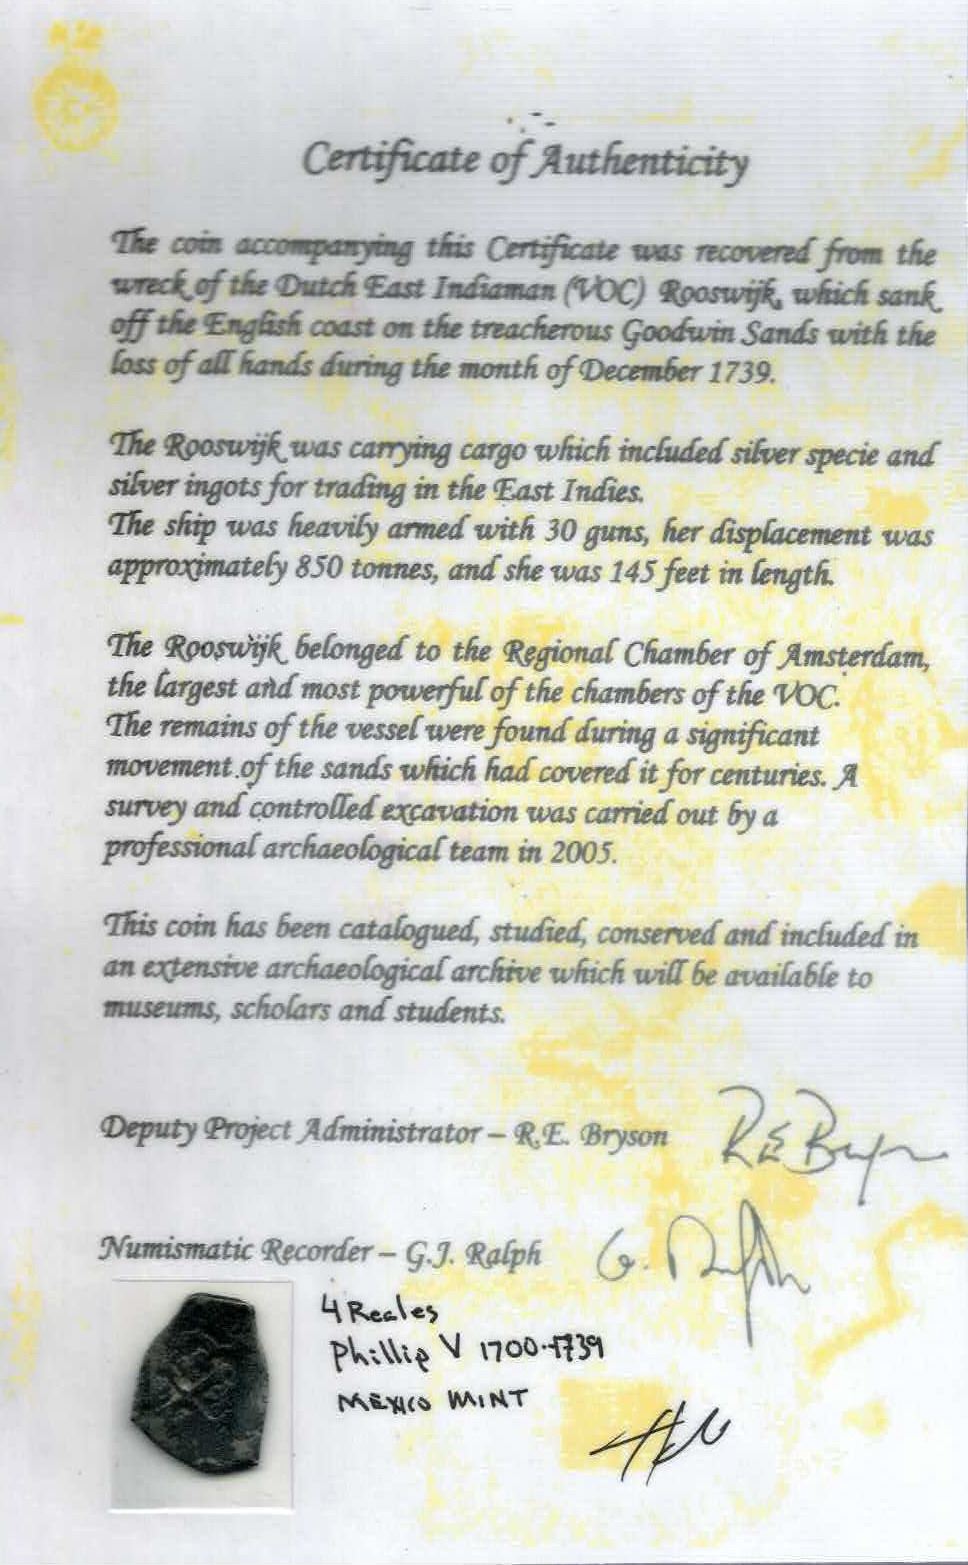 Certificate of Authenticity
The coin accompanying this Certificate was recovered from the
wreck of the Dutch East Indiaman (VOC) Rooswijk, which sank
off the English coast on the treacherous Goodwin Sands with the
loss of all hands during the month of December 1739.
The Rooswijk was carrying cargo which included silver specie and
silver ingots for trading in the East Indies.
The ship was heavily armed with 30 guns, her displacement was
approximately 850 tonnes, and she was 145 feet in length.
The Rooswijk belonged to the Regional Chamber of Amsterdam,
the largest and most powerful of the chambers of the VOC.
The remains of the vessel were found during a significant
movement of the sands which had covered it for centuries. A
survey and controlled excavation was carried out by a
professional archaeological team in 2005.
This coin has been catalogued, studied, conserved and included in
an extensive archaeological archive which will be available to
museums, scholars and students.
Deputy Project Administrator – R.E. Bryson
R E Bryson
Numismatic Recorder – G.J. Ralph
G. Ralph
4 Reales
Phillip V 1700-1739
MEXICO MINT